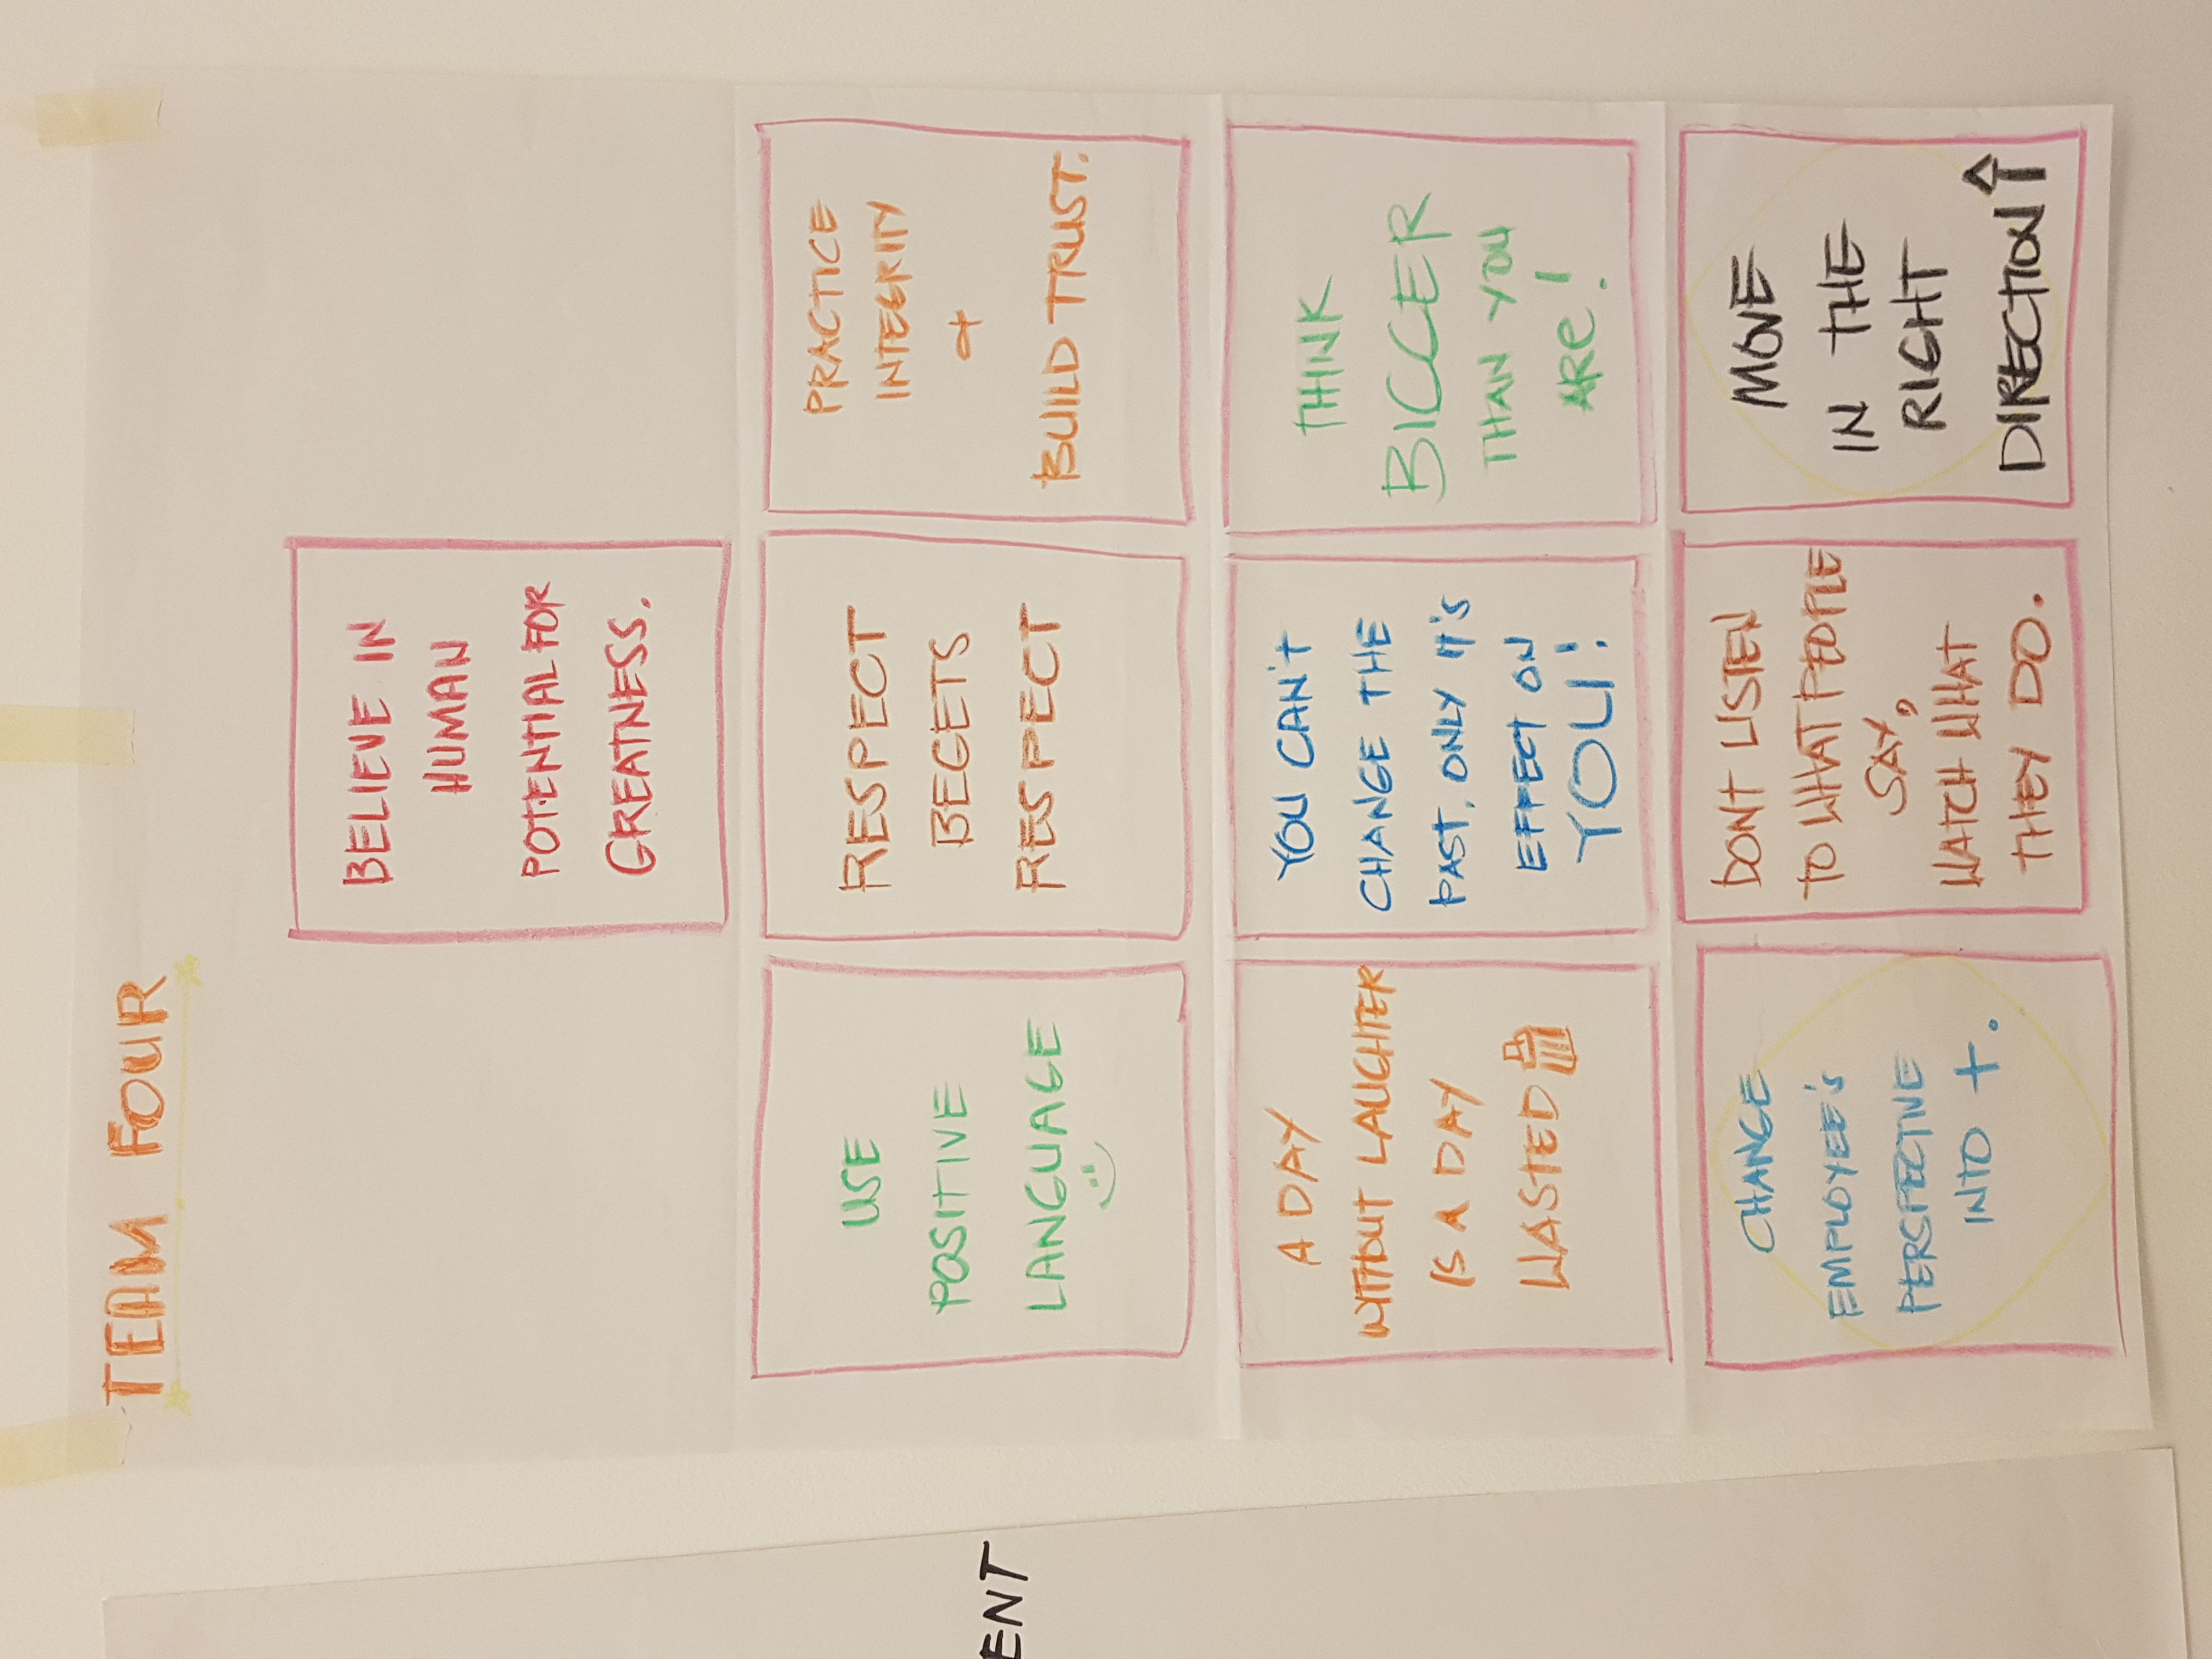 TEAM FOUR
BELIEVE IN
HUMAN
POTENTIAL FOR
GREATNESS.
USE
POSITIVE
LANGUAGE
RESPECT
BEGETS
RESPECT
PRACTICE
INTEGRITY
+
BUILD TRUST.
A DAY
WITHOUT LAUGHTER
IS A DAY
WASTED
YOU CAN'T
CHANGE THE
PAST, ONLY IT'S
EFFECT ON
YOU!
THINK
BIGGER
THAN YOU
ARE!
CHANGE
EMPLOYEE'S
PERSPECTIVE
INTO +.
DONT LISTEN
TO WHAT PEOPLE
SAY,
WATCH WHAT
THEY DO.
MOVE
IN THE
RIGHT
DIRECTION
ENT